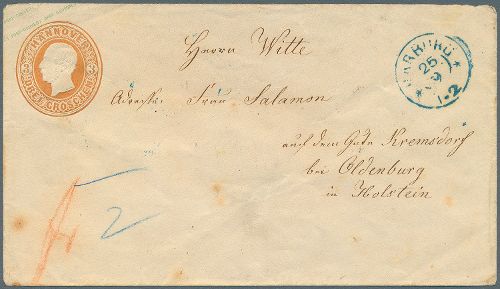 HANNOVER
DREI GROSCHEN
HARBURG
25
9
1-2
Herrn Witte
Adresse: Frau Salamon
auf dem Gute Kremsdorf
bei Oldenburg
in Holstein
2